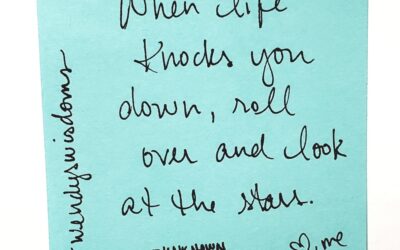 When life
knocks you
down, roll
over and look
at the stars.
unknown
♡, me
#wendyswisdoms